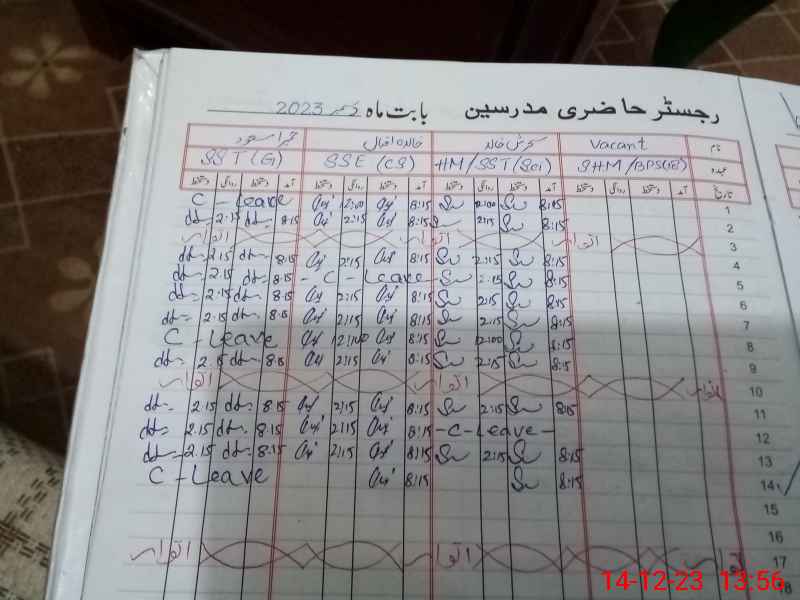 رجسٹر حاضری مدرسین بابت ماہ دسمبر 2023
نام Vacant سحرش خالد خالدہ اقبال حمیرا سعود
عہدہ SHM/BPS(18) HM/SST(Sci) SSE (CS) SST(G)
تاریخ آمد دستخط روانگی دستخط آمد دستخط روانگی دستخط آمد دستخط روانگی دستخط آمد دستخط روانگی دستخط
1 8:15 2:00 8:15 12:00 C - Leave
2 8:15 2:15 8:15 2:15 8:15 2:15
3 اتوار اتوار اتوار
4 8:15 2:15 8:15 2:15 8:15 2:15
5 8:15 2:15 - C Leave - 8:15 2:15
6 8:15 2:15 8:15 2:15 8:15 2:15
7 8:15 2:15 8:15 2:15 8:15 2:15
8 8:15 12:00 8:15 12:00 C - Leave
9 8:15 2:15 8:15 2:15 8:15 2:15
10 اتوار اتوار اتوار
11 8:15 2:15 8:15 2:15 8:15 2:15
12 - C - Leave - 8:15 2:15 8:15 2:15
13 8:15 2:15 8:15 2:15 8:15 2:15
14 8:15 8:15 C - Leave
15
16
17 اتوار اتوار اتوار
18
14-12-23 13:56